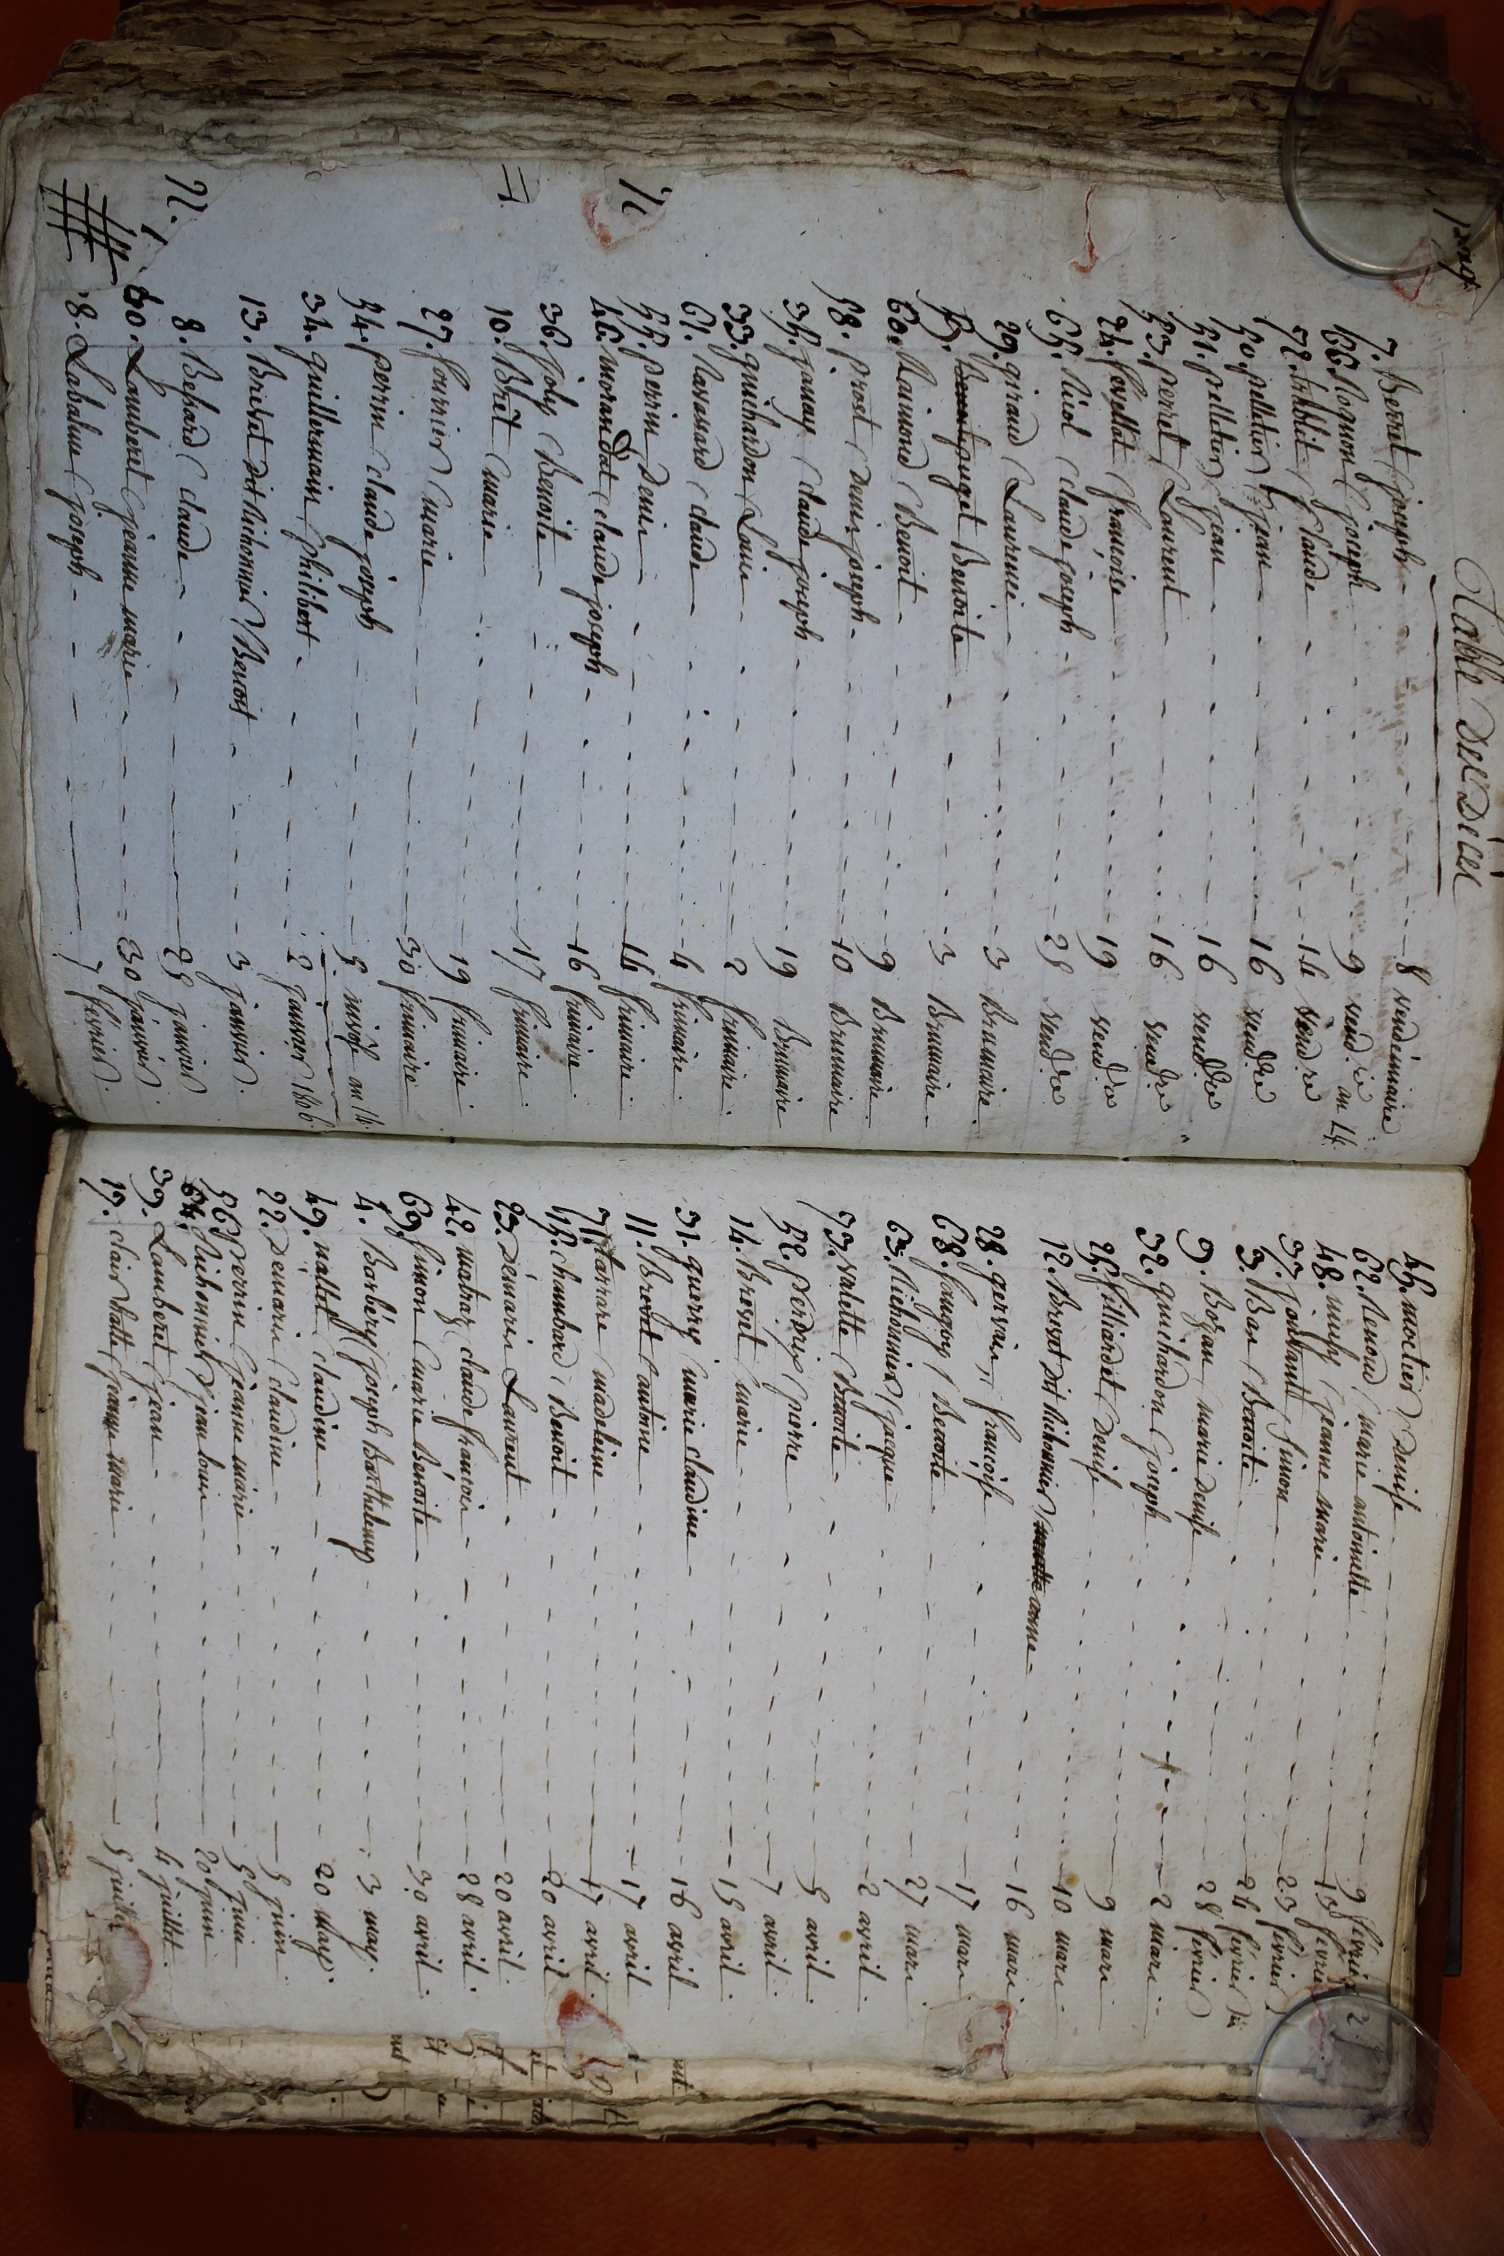 Table des Décès
7. Berret joseph 8 vendémiaire
66. Romman joseph 9 vend.re an 14.
72. claude 14 vend.re
50. pelletier jean 16 vend.re
51. pelletier jean 16 vend.re
53. perret Laurent 16 vend.re
24. feyollat françoise 19 vend.re
65. Riol claude joseph 28 vend.re
29. giraud Laurence 3 Brumaire.
fuget Benoite 3 Brumaire.
60. Raimond Benoit 9 Brumaire.
58. prost Denis joseph 10 Brumaire
35. janay claude joseph 19 Brumaire
33. guichardon Louis 2 frimaire.
61. Ravassard claude 4 frimaire.
55. perrin Denis 14 frimaire.
46. morandat claude joseph 16 frimaire.
36. joly Benoite 17 frimaire.
10. Bret marie 19 frimaire.
27. fournier marie 30 frimaire
54. perrin claude joseph 5 nivôse an 14.
34. guillermain philibert 2 janvier 1806.
13. Brevet dit Bihonnier Benoit 3 janvier.
8. Bessard claude 25 janvier
40. Lamberet jeanne marie 30 janvier.
38. Labalme joseph 7 février.
45. mortier Denise 9 février
62. Renoud marie antoinette 13 février
48. jeanne marie 23 février
37. simon 24 février
3. Bas Benoite 28 février
9. Bozan marie Denise 2 mars
32. guichardon joseph 9 mars
25. filliardet Denise 10 mars
12. Brevet dit Bihonnier anne 16 mars
28. gervais françoise 17 mars.
68. fougoy Benoite 27 mars.
63. Richonnier jacque 2 avril.
73. valette Benoite 5 avril.
52. perdrix pierre 7 avril.
14. Brevet marie 15 avril.
31. guerry marie claudine 16 avril
11. Brevet antoine 17 avril
71. madeleine 17 avril.
15. chambard Benoit 20 avril
23. Démaris Laurent 20 avril.
42. matray claude françois 28 avril.
69. simon marie Benoite 30 avril.
4. Barbéry joseph Barthelemy 3 may.
49. nallet claudine 20 may.
22. Demaris claudine 5 juin.
56. Perrin jeanne marie 5 juin
64. Richonnier jean louis 20 juin
39. Lamberet jean 4 juillet.
19. clair jeanne marie 5 juillet